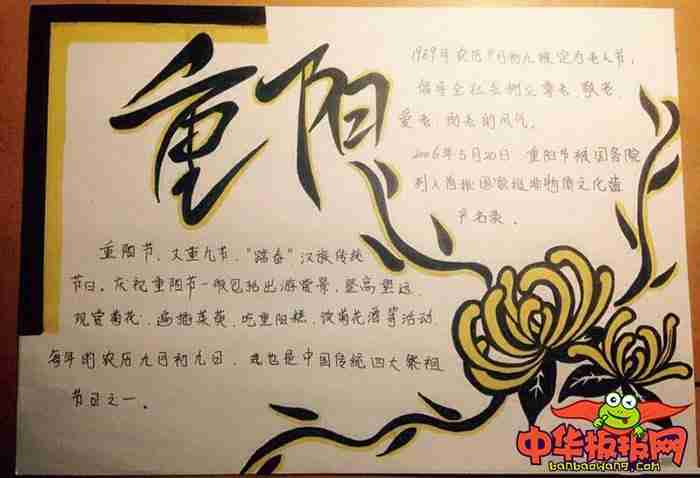 重阳
1989年农历9月初九被定为老人节，
倡导全社会树立尊老、敬老、
爱老、助老的风气。
2006年5月20日，重阳节被国务院
列入首批国家级非物质文化遗
产名录。
重阳节，又重九节，"踏春"汉族传统
节日。庆祝重阳节一般包括出游赏景、登高望远、
观赏菊花、遍插茱萸、吃重阳糕、饮菊花酒等活动，
每年的农历九月初九日，也是中国传统四大祭祖
节日之一。
中华板报网
banbaowang.com